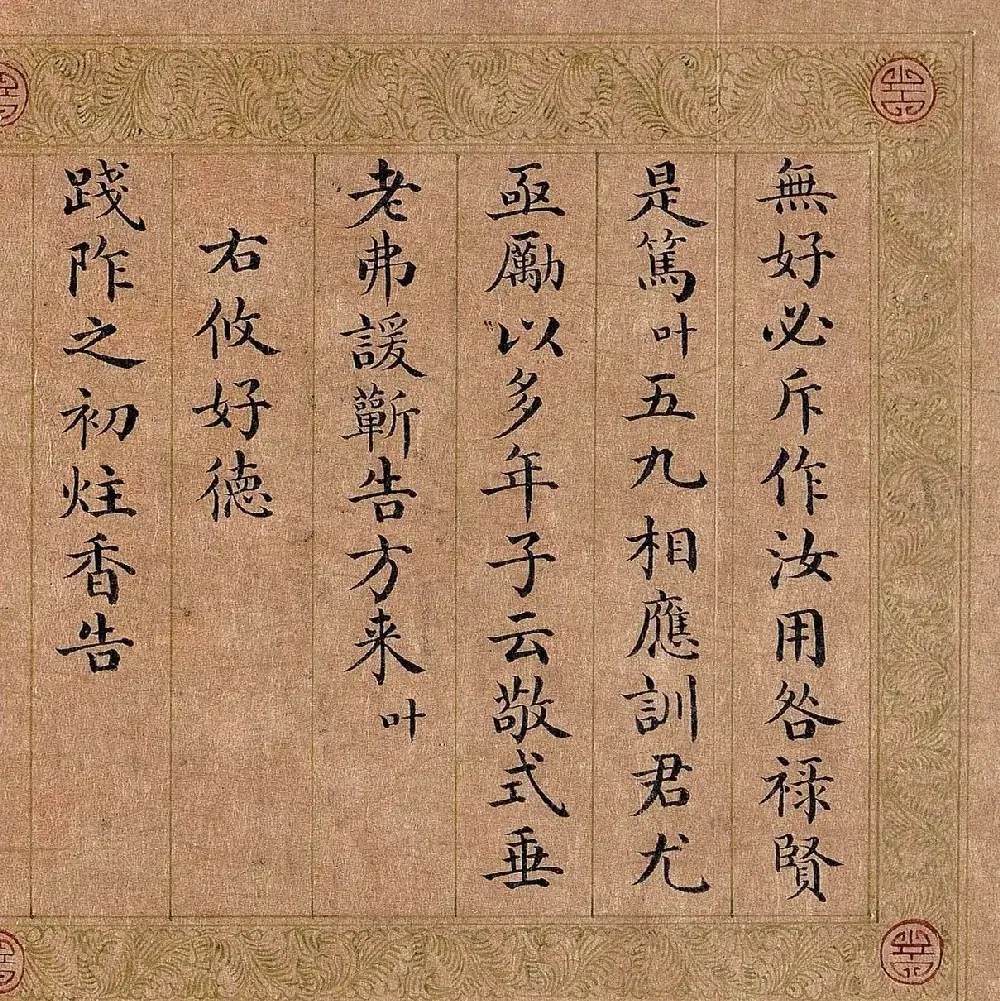 無好必斥作汝用咎禄賢
是篤叶五九相應訓君尤
亟勵以多年子云敬式垂
老弗諼蘄告方来叶
右攸好德
踐阼之初炷香告